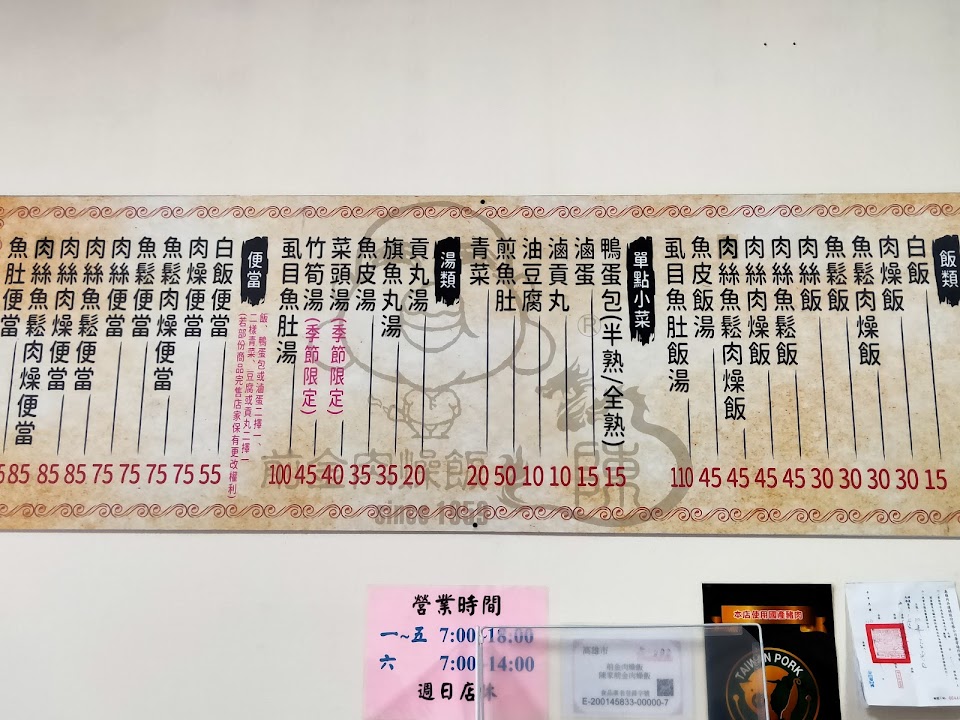 飯類
白飯 15
肉燥飯 30
魚鬆肉燥飯 30
魚鬆飯 30
肉絲飯 30
肉絲魚鬆飯 45
肉絲肉燥飯 45
肉絲魚鬆肉燥飯 45
魚皮飯湯 45
虱目魚肚飯湯 110
單點小菜
鴨蛋包(半熟/全熟) 15
滷蛋 15
滷貢丸 10
油豆腐 10
煎魚肚 50
青菜 20
湯類
貢丸湯 20
旗魚丸湯 35
魚皮湯 35
菜頭湯(季節限定) 40
竹筍湯(季節限定) 45
虱目魚肚湯 100
便當
飯、鴨蛋包或滷蛋二擇一、
二樣青菜、豆腐或貢丸二擇一
(若部份商品完售店家保有更改權利)
白飯便當 55
肉燥便當 75
魚鬆肉燥便當 75
魚鬆便當 75
肉絲便當 75
肉絲魚鬆便當 85
肉絲肉燥便當 85
肉絲魚鬆肉燥便當 85
魚肚便當 5
前金肉燥飯
陳
®
since 1959
營業時間
一~五 7:00-18:00
六 7:00-14:00
週日店休
高雄市
前金肉燥飯
陳家前金肉燥飯
食品業者登錄字號
E-200145833-00000-7
本店使用國產豬肉
TAIWAN PORK